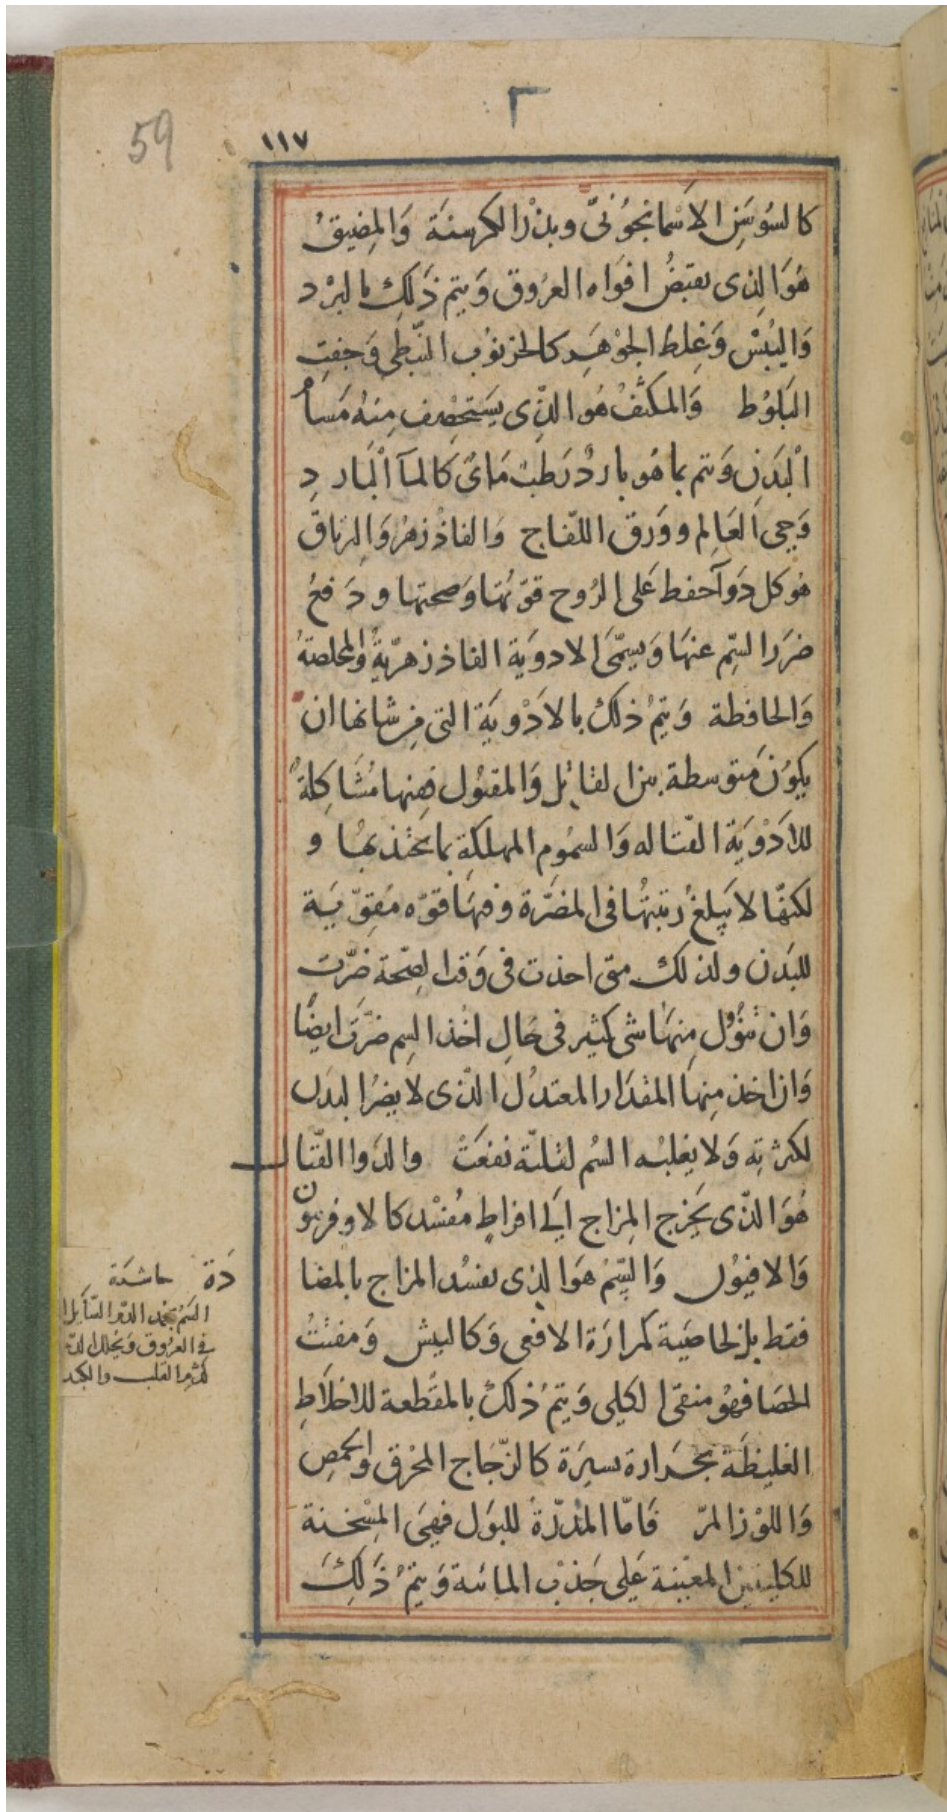 59
١١٧
كالسُوسَنِ الاسَمانجُونىّ وبذْرِ الكرسنَة وَالمِضيقُ
هُوَ الذِى يقبضُ افوَاه العرُوق وَيتم ذَلِك بالبرْد
وَاليُبْسْ وَغِلظ الجوْهَرِ كالخرنوُب النّبطى وَجفتِ
البَلوُط وَالمكثفْ هُوَ الذِّى يَستَحْصِف مِنهُ مَسَامُ
الْبَدَنِ وَيتم بما هُو بارِدٌ رَطبٌ مَائىٌ كَالمآ الْبَارِدِ
وَحِى العَالِم ووَرَق اللّفاح وَالفاذْزهرُ وَالترياقُ
هُوَ كل دَوآ حفظ عَلى الرُوح قوّتُها وَصحتها ودَفعُ
ضرَرَ السّم عنهَا وَيسمّى الادويَة الفاذزهرّيةُ والمخلصةُ
وَالحافظة وَيتِمُ ذلكْ بالاَدْويَة التى مِن شانها ان
يكوُن مَتوسطة بين القابل وَالمقبُول فمِنها مُشَاكِلةٌ
للادَوْيَة القّتاله وَالسمُوم المهلكَةِ بما يحْتَذبهُا و
لكنهّا لا يَبلغُ رتبتهُا فى المضرَّة وفيهَا قوّه مَقوّيَة
للبَدَن ولذلكْ متى اخذت فى وَقت الصِحّة ضرّت
وَان تنُوُل مِنهَا شى كثير فى حَالِ اخْذ السِم ضرَّت ايضًا
وَان اخذ مِنهَا المقدَار المعتدُل الذّى لا يضرُ البدَن
لكثرتهِ وَلا يغلبْه السُم لقلتّه نفعَتْ والدَوا القّتال
هُوَ الذّى يَخرج المِزاج اِلَى افراطٍ مُفسْد كالاوفربيون
وَالافيوُن وَالسِّمُ هَوَ الذِى يفسُد المزاج بالمضا
دَة
فقط بل لخاصَية كمرارَة الافعى وَكالبيش وَمفتتُ
الحَصَا فهُو منقى الكلِى وَيتِمُ ذلكْ بالمقَطعة للاخلَاطِ
الغليظَة بحَرارة يسيَرة كالزّجَاج المحْرَق والحمصِ
وَاللوْز المرّ فَامّا المْدرّةُ للبَول فهِىَ المِسْخنة
للكليتين المعَيِنة عَلى جَذبْ المائية وَيتِمُ ذَلِكَ
حاشية
السَمُّ يجمد الدَم السَّايل
فى العرُوق وَيحلل
القلب والكبد